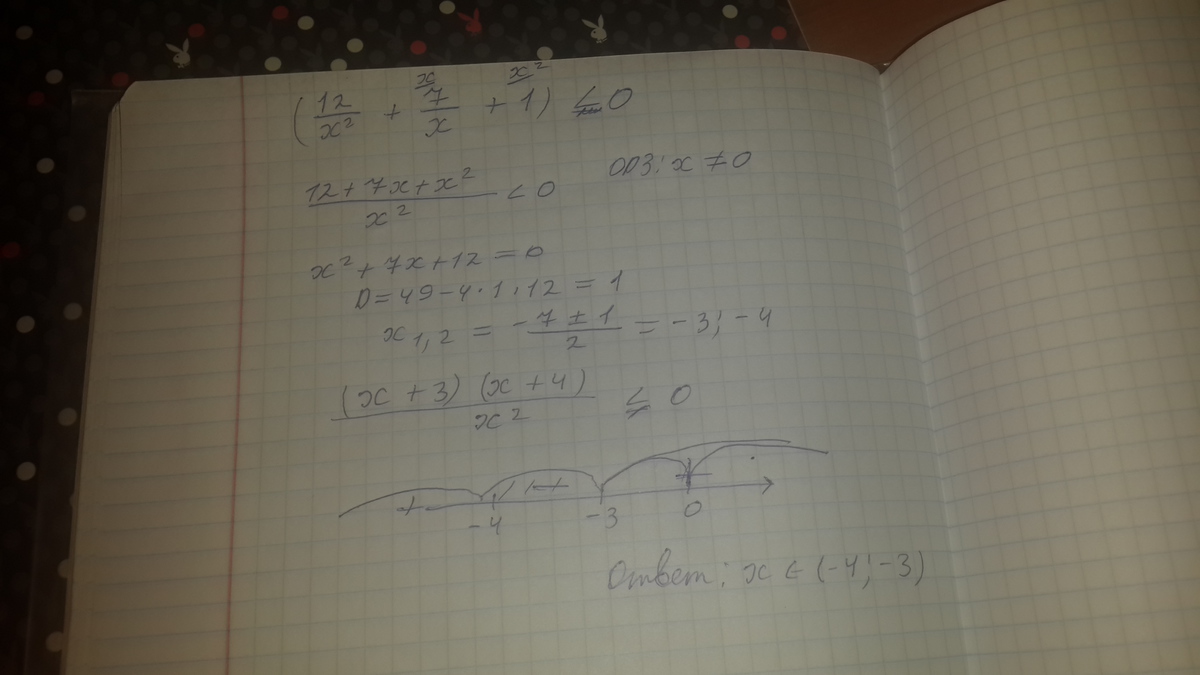 (12/x² + 7/x + 1) ≤ 0 x x²
12 + 7x + x² / x² < 0 ОДЗ: x ≠ 0
x² + 7x + 12 = 0
D = 49 - 4 · 1 · 12 = 1
x 1,2 = -7 ± 1 / 2 = -3; -4
(x + 3) (x + 4) / x² ≤ 0
+ +
-4 -3 0
Ответ: x ∈ (-4; -3)